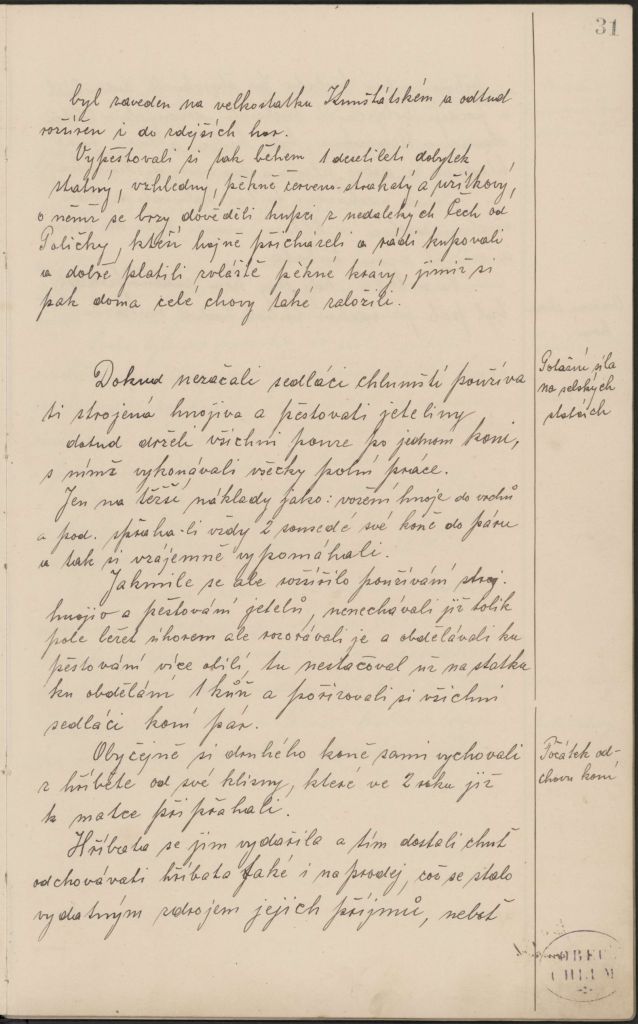 31
byl zaveden na velkostatku Kunštátském a odtud
rozšířen i do zdejších hor.
Vypěstovali si tak během 1 desetiletí dobytek
statný, vzhledný, pěkně červeno-strakatý a užitkový,
o němž se brzy dověděli kupci z nedalekých Čech od
Poličky, kteří hojně přicházeli a rádi kupovali
a dobře platili zvláště pěkné krávy, jimiž si
pak doma celé chovy také založili.
Potažní síla
na selských
statcích
Dokud nezačali sedláci chlumští používa
ti strojená hnojiva a pěstovati jeteliny
dotud drželi všichni pouze po jednom koni,
s nímž vykonávali všecky polní práce.
Jen na těžší náklady jako: vožení hnoje do vrchů
a pod. spřaha-li vždy 2 sousedé své koně do páru
a tak si vzájemně vypomáhali.
Jakmile se ale rozšířilo používání stroj.
hnojiv a pěstování jetelů, nenechávali již tolik
pole ležet úhorem ale rozorávali je a obdělávali ku
pěstování více obilí, tu nestačoval už na statku
ku obdělání 1 kůň a pořizovali si všichni
sedláci koní pár.
Počátek od-
chovu koní
Obyčejně si druhého koně sami vychovali
z hříběte od své klisny, které ve 2 roku již
k matce připřahali.
Hříbata se jim vydařila a tím dostali chuť
odchovávati hříbata také i na prodej, což se stalo
vydatným zdrojem jejich příjmů, neboť
OBEC
CHLUM